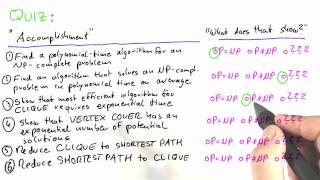 QUIZ:
"Accomplishment"
"What does that show?"
① Find a polynomial-time algorithm for an
NP-complete problem
OP=NP OP≠NP O???
② Find an algorithm that solves an NP-compl.
problem in polynomial time on average
OP=NP OP≠NP O???
③ Show that most efficient algorithm for
CLIQUE requires exponential time
OP=NP OP≠NP O???
④ Show that VERTEX COVER has an
exponential number of potential
solutions
OP=NP OP≠NP O???
⑤ Reduce CLIQUE to SHORTEST PATH
OP=NP OP≠NP O???
⑥ Reduce SHORTEST PATH to CLIQUE
OP=NP OP≠NP O???